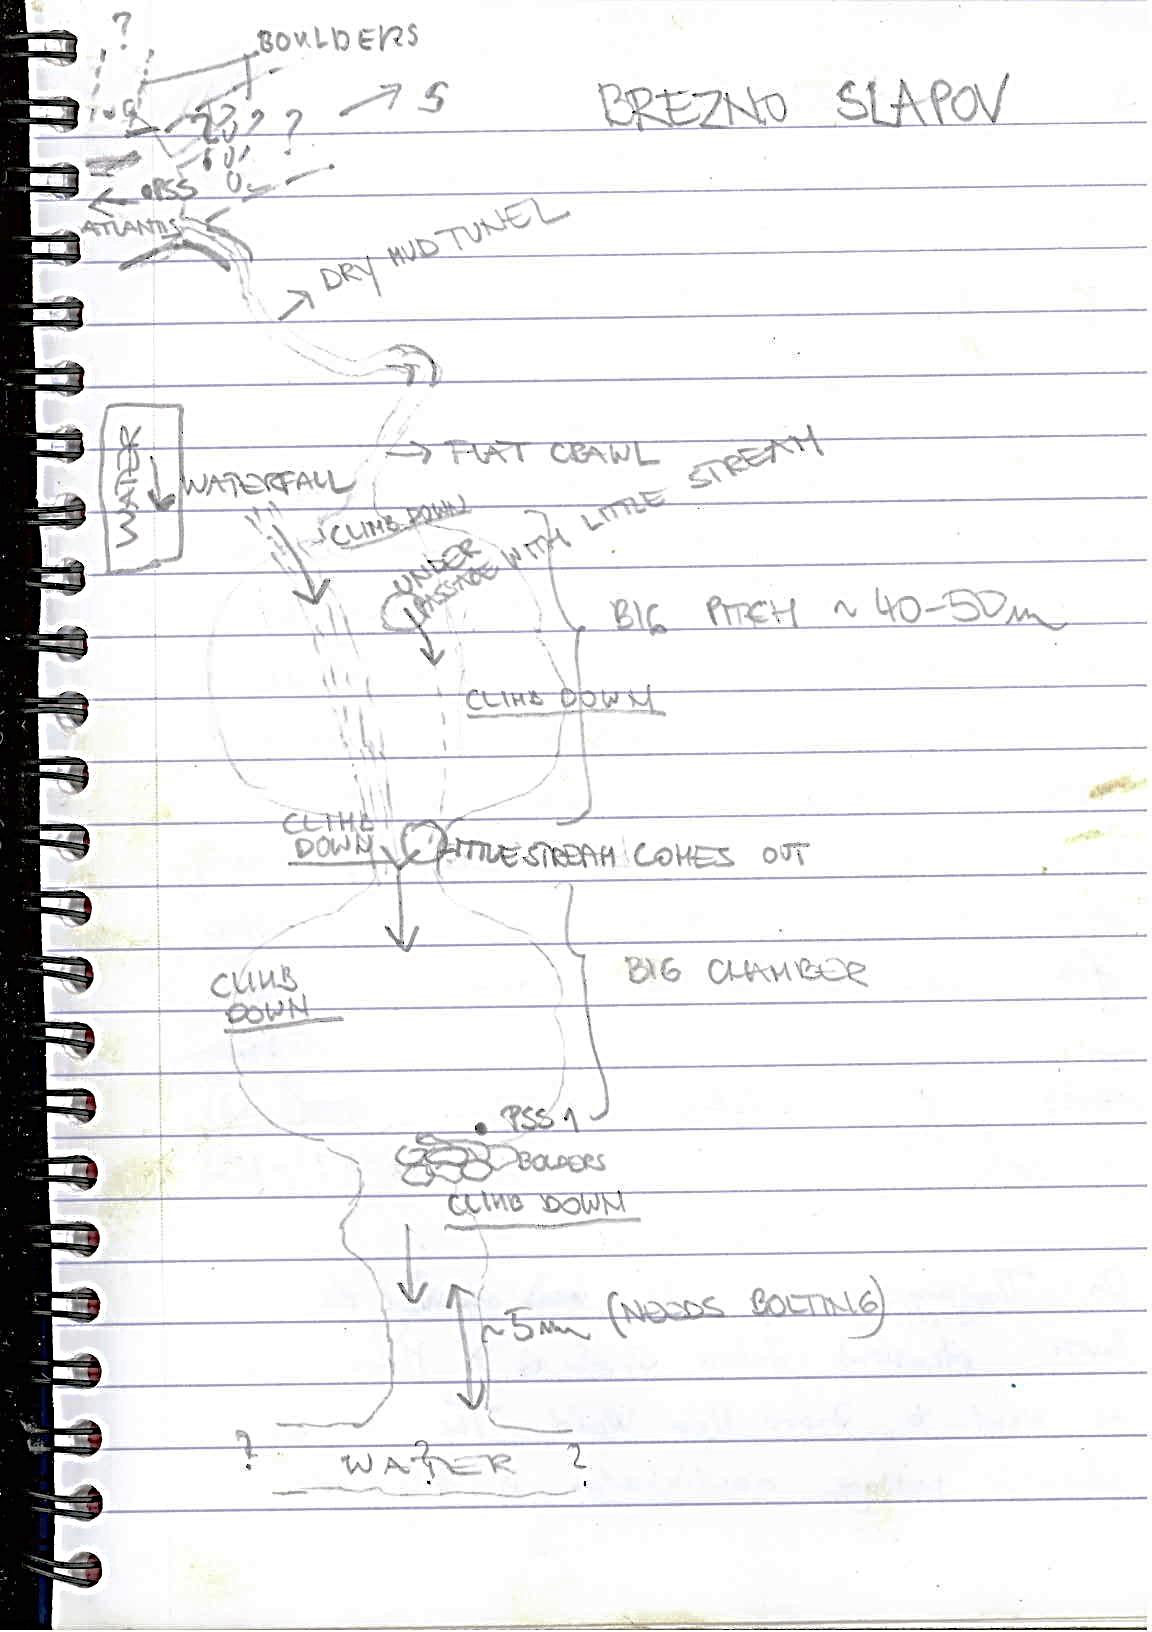 ?
BOULDERS
S
BREZNO SLAPOV
?
PSS
ATLANTIS
DRY MUD TUNEL
FLAT CRAWL
WATER
WATERFALL
CLIMB DOWN
UNDER
PASSAGE WITH LITTLE STREAM
BIG PITCH ~ 40-50m
CLIMB DOWN
CLIMB
DOWN
LITTLE STREAM COMES OUT
BIG CHAMBER
CLIMB
DOWN
PSS 1
BOLDERS
CLIMB DOWN
~5m (NEEDS BOLTING)
? WATER ?
?